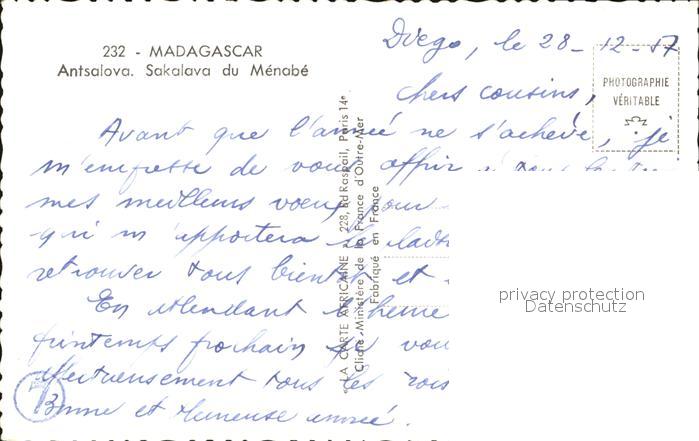 232 - MADAGASCAR
Antsalova. Sakalava du Ménabé
Diego, le 28-12-57
PHOTOGRAPHIE
VÉRITABLE
Chers cousins,
Avant que l'année ne s'achève, je
m'empresse de vous offrir à tous
mes meilleurs voeux pour
qui m'apportera la
retrouver tous bientôt et
En attendant l'heure
printemps prochain je vous
affectueusement tous les trois
Bonne et heureuse année.
"LA CARTE AFRICAINE 228, Bd Raspail, Paris 14e
Cliché Ministère de la France d'Outre-Mer
Fabriqué en France
privacy protection
Datenschutz